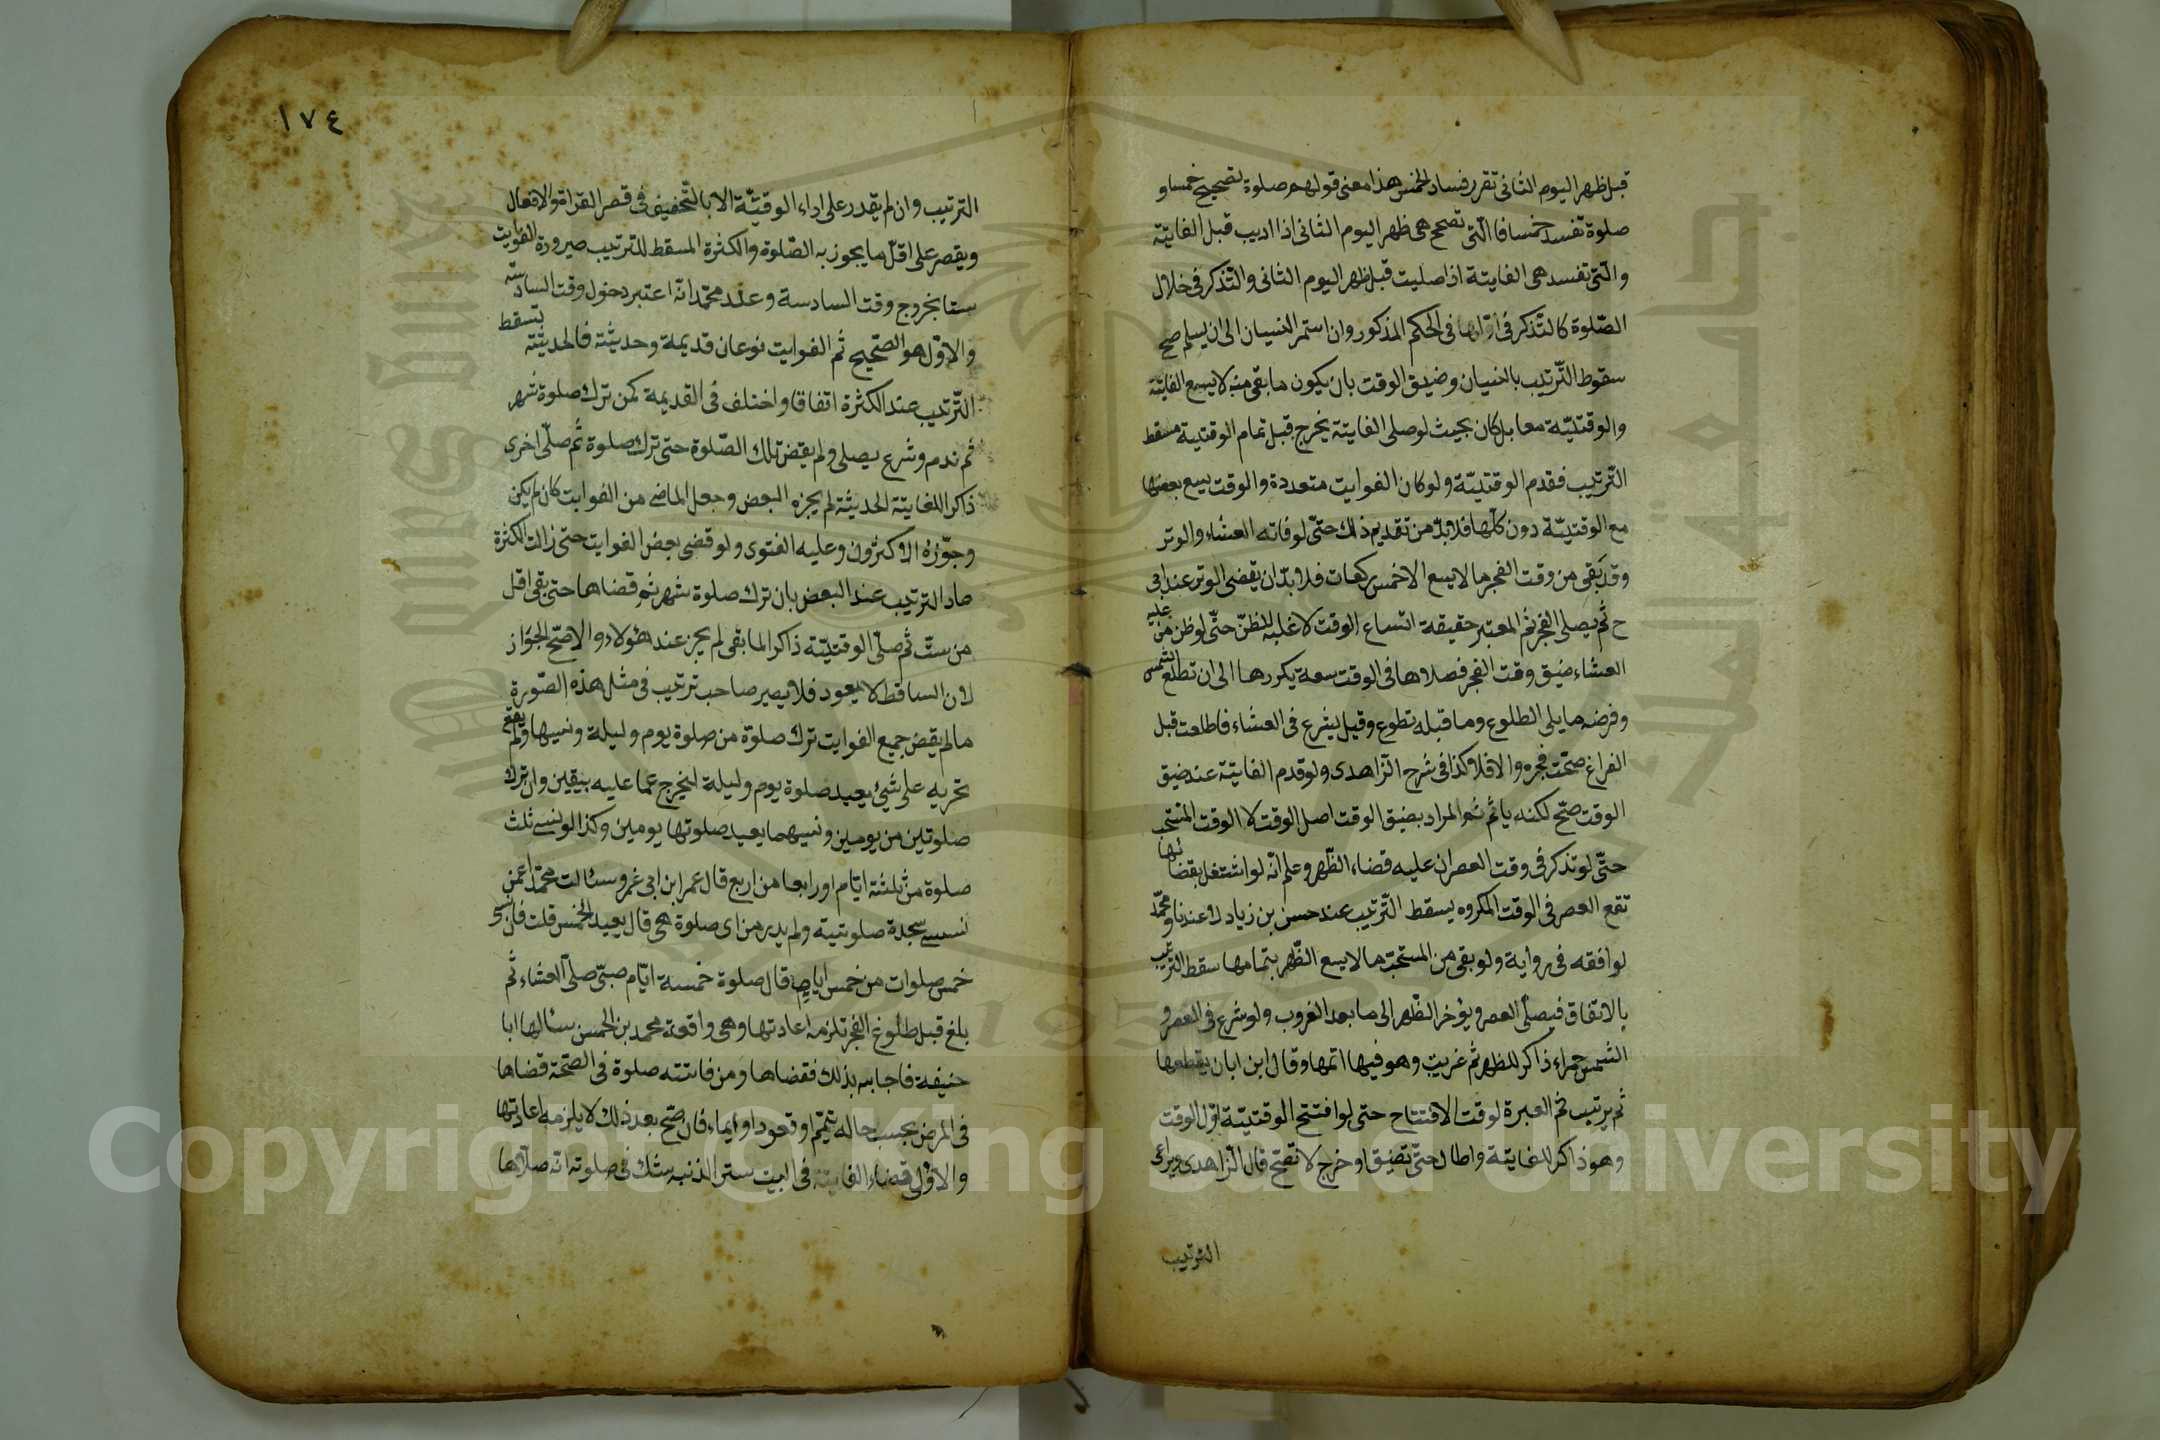 قبل ظهر اليوم الثانى تقرر فساد الخمس هذا معنى قولهم صلوة تصحيح خمسا و
صلوة تفسد خمسا فالتى تصحح هى ظهر اليوم الثانى اذا اديت قبل الفايتة
والتى تفسد هى الفايتة اذا صليت قبل ظهر اليوم الثانى والتذكر فى خلال
الصلوة كالتذكر فى اولها فى الحكم المذكور وان استمر النسيان الى ان يسلم صح
سقوط الترتيب بالنسيان وضيق الوقت بان يكون ما بقى منه لا يسع الفايتة
والوقتية معا بل كان بحيث لو صلى الفايتة يخرج قبل تمام الوقتية مسقط
الترتيب فقدم الوقتية ولو كان الفوايت متعددة والوقت يسع بعضها
مع الوقتية دون كلها فلا بد من تقديم ذلك حتى لو فاته العشاء والوتر
وقد بقى من وقت الفجر ما لا يسع الا خمس ركعات فلا بد ان يقضى الوتر عند ابى
ح ثم يصلى الفجر ثم المعتبر حقيقة اتساع الوقت لا غلبة الظن حتى لو ظن من عليه
العشاء ضيق وقت الفجر فصلاها فى الوقت سعة يكررها الى ان تطلع الشمس
وفرضه ما يلى الطلوع وما قبله تطوع وقيل يشرع فى العشاء فاطلعت قبل
الفراغ صحت فجره والا فلا كذا فى شرح الزاهدى ولو قدم الفايتة عند ضيق
الوقت صح لكنه ياثم ثم المراد بضيق الوقت اصل الوقت لا الوقت المستحب
حتى لو تذكر فى وقت العصر ان عليه قضاء الظهر وعلم انه لو اشتغل بقضائها
تقع العصر فى الوقت المكروه يسقط الترتيب عند حسن بن زياد لا عندنا ومحمد
لوافقه فى رواية ولو بقى من المستحب ما لا يسع الظهر بتمامها سقط الترتيب
بالاتفاق فيصلى العصر ويؤخر الظهر الى ما بعد الغروب ولو شرع فى العصر و
الشمس حمراء ذاكر للظهر ثم غربت وهو فيها اتمها وقال ابن ابان يقطعها
ثم يرتب ثم العبرة لوقت الافتتاح حتى لو افتتح الوقتية اول الوقت
وهو ذاكر للفايتة واطال حتى تضيق او خرج لا تصح قال الزاهدى ويراعى
الترتيب
١٧٤
الترتيب وان لم يقدر على اداء الوقتية الا بالتخفيف فى قصر القراة والافعال
ويقصر على اقل ما يجوز به الصلوة والكثرة المسقط للترتيب صيرورة الفوايت
ستا بخروج وقت السادسة وعند محمد انه اعتبر دخول وقت السادسة
والاول هو الصحيح ثم الفوايت نوعان قديمة وحديثة فالحديثة تسقط
الترتيب عند الكثرة اتفاقا واختلف فى القديمة كمن ترك صلوة شهر
ثم ندم وشرع يصلى ولم يقض تلك الصلوة حتى ترك صلوة ثم صلى اخرى
ذاكرا للفايتة الحديثة لم يجزه البعض وجعل الماضى من الفوايت كان لم يكن
وجوزه الاكثرون وعليه الفتوى ولو قضى بعض الفوايت حتى زالت الكثرة
عاد الترتيب عند البعض بان ترك صلوة شهر ثم قضاها حتى بقى اقل
من ست ثم صلى الوقتية ذاكرا لما بقى لم يجز عند هؤلاء والاصح الجواز
لان الساقط لا يعود فلا يصير صاحب ترتيب فى مثل هذه الصورة
ما لم يقض جميع الفوايت ترك صلوة من صلوة يوم وليلة ونسيها ولم يقع
تحريه على شئ يعيد صلوة يوم وليلة ليخرج عما عليه بيقين وان ترك
صلوتين من يومين ونسيهما يعيد صلوتها يومين وكذا لو نسى ثلث
صلوة من ثلثة ايام او رابعا من اربع قال عمر ابن ابى عمرو سئالت محمدا عمن
نسى سجدة صلوتية ولم يدر من اى صلوة هى قال يعيد الخمس قلت فان نسى
خمس صلوات من خمس ايام قال صلوة خمسة ايام صبى صلى العشاء ثم
بلغ قبل طلوع الفجر تلزمه اعادتها وهى واقعة محمد بن الحسن سئالها ابا
حنيفة فاجابه بذلك فقضاها ومن فاتته صلوة فى الصحة قضاها
فى المرض بحسب حاله بتيمم او قعود او ايماء فان صح بعد ذلك لا يلزمه اعادتها
والاولى قضاء الفايتة فى البيت ستر الذنبه شك فى صلوته انه صلاها
Copyright © King Saud University
جامعة الملك سعود
King Saud University
1957